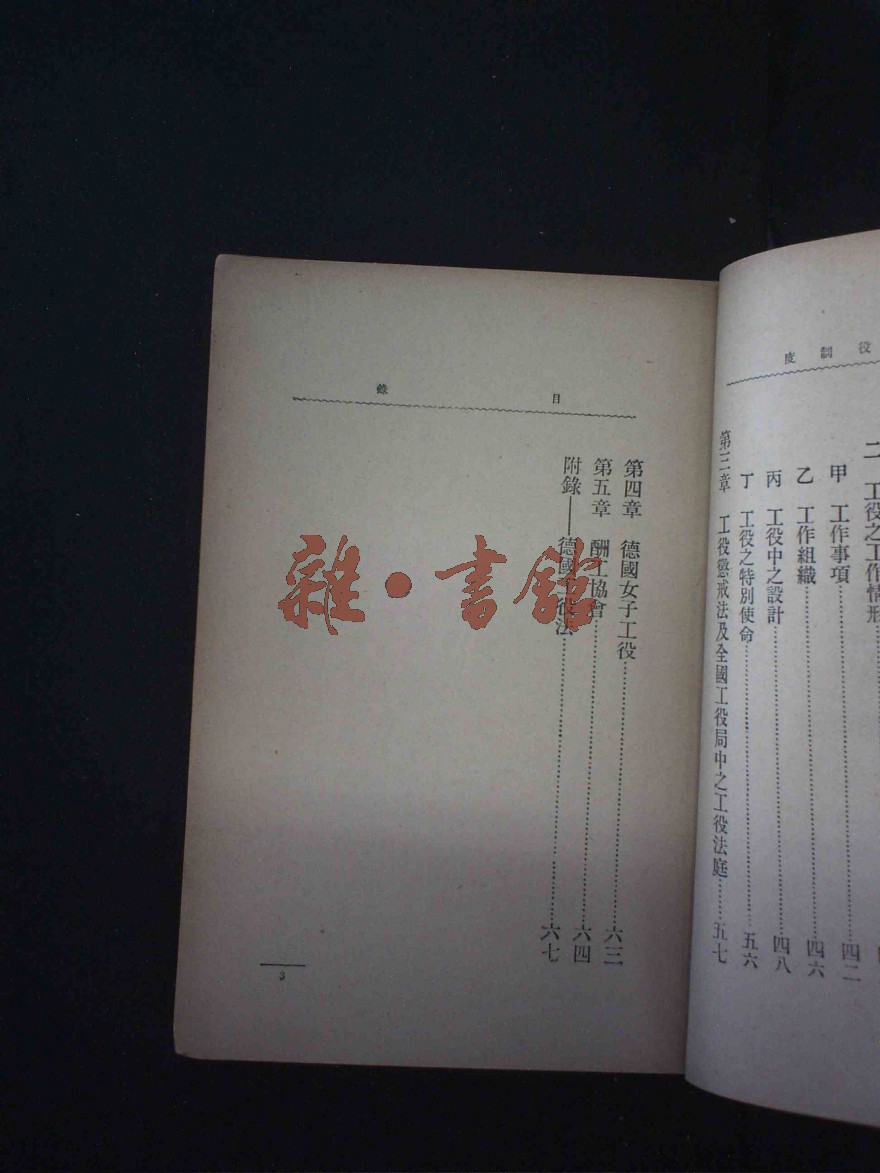 役制度
二 工役之工作情形
甲 工作事項……四二
乙 工作組織……四六
丙 工役中之設計……四八
丁 工役之特別使命……五六
第三章 工役懲戒法及全國工役局中之工役法庭……五七
目錄
第四章 德國女子工役……六三
第五章 酬工協會……六四
附錄——德國工役法……六七
3
雜·書館